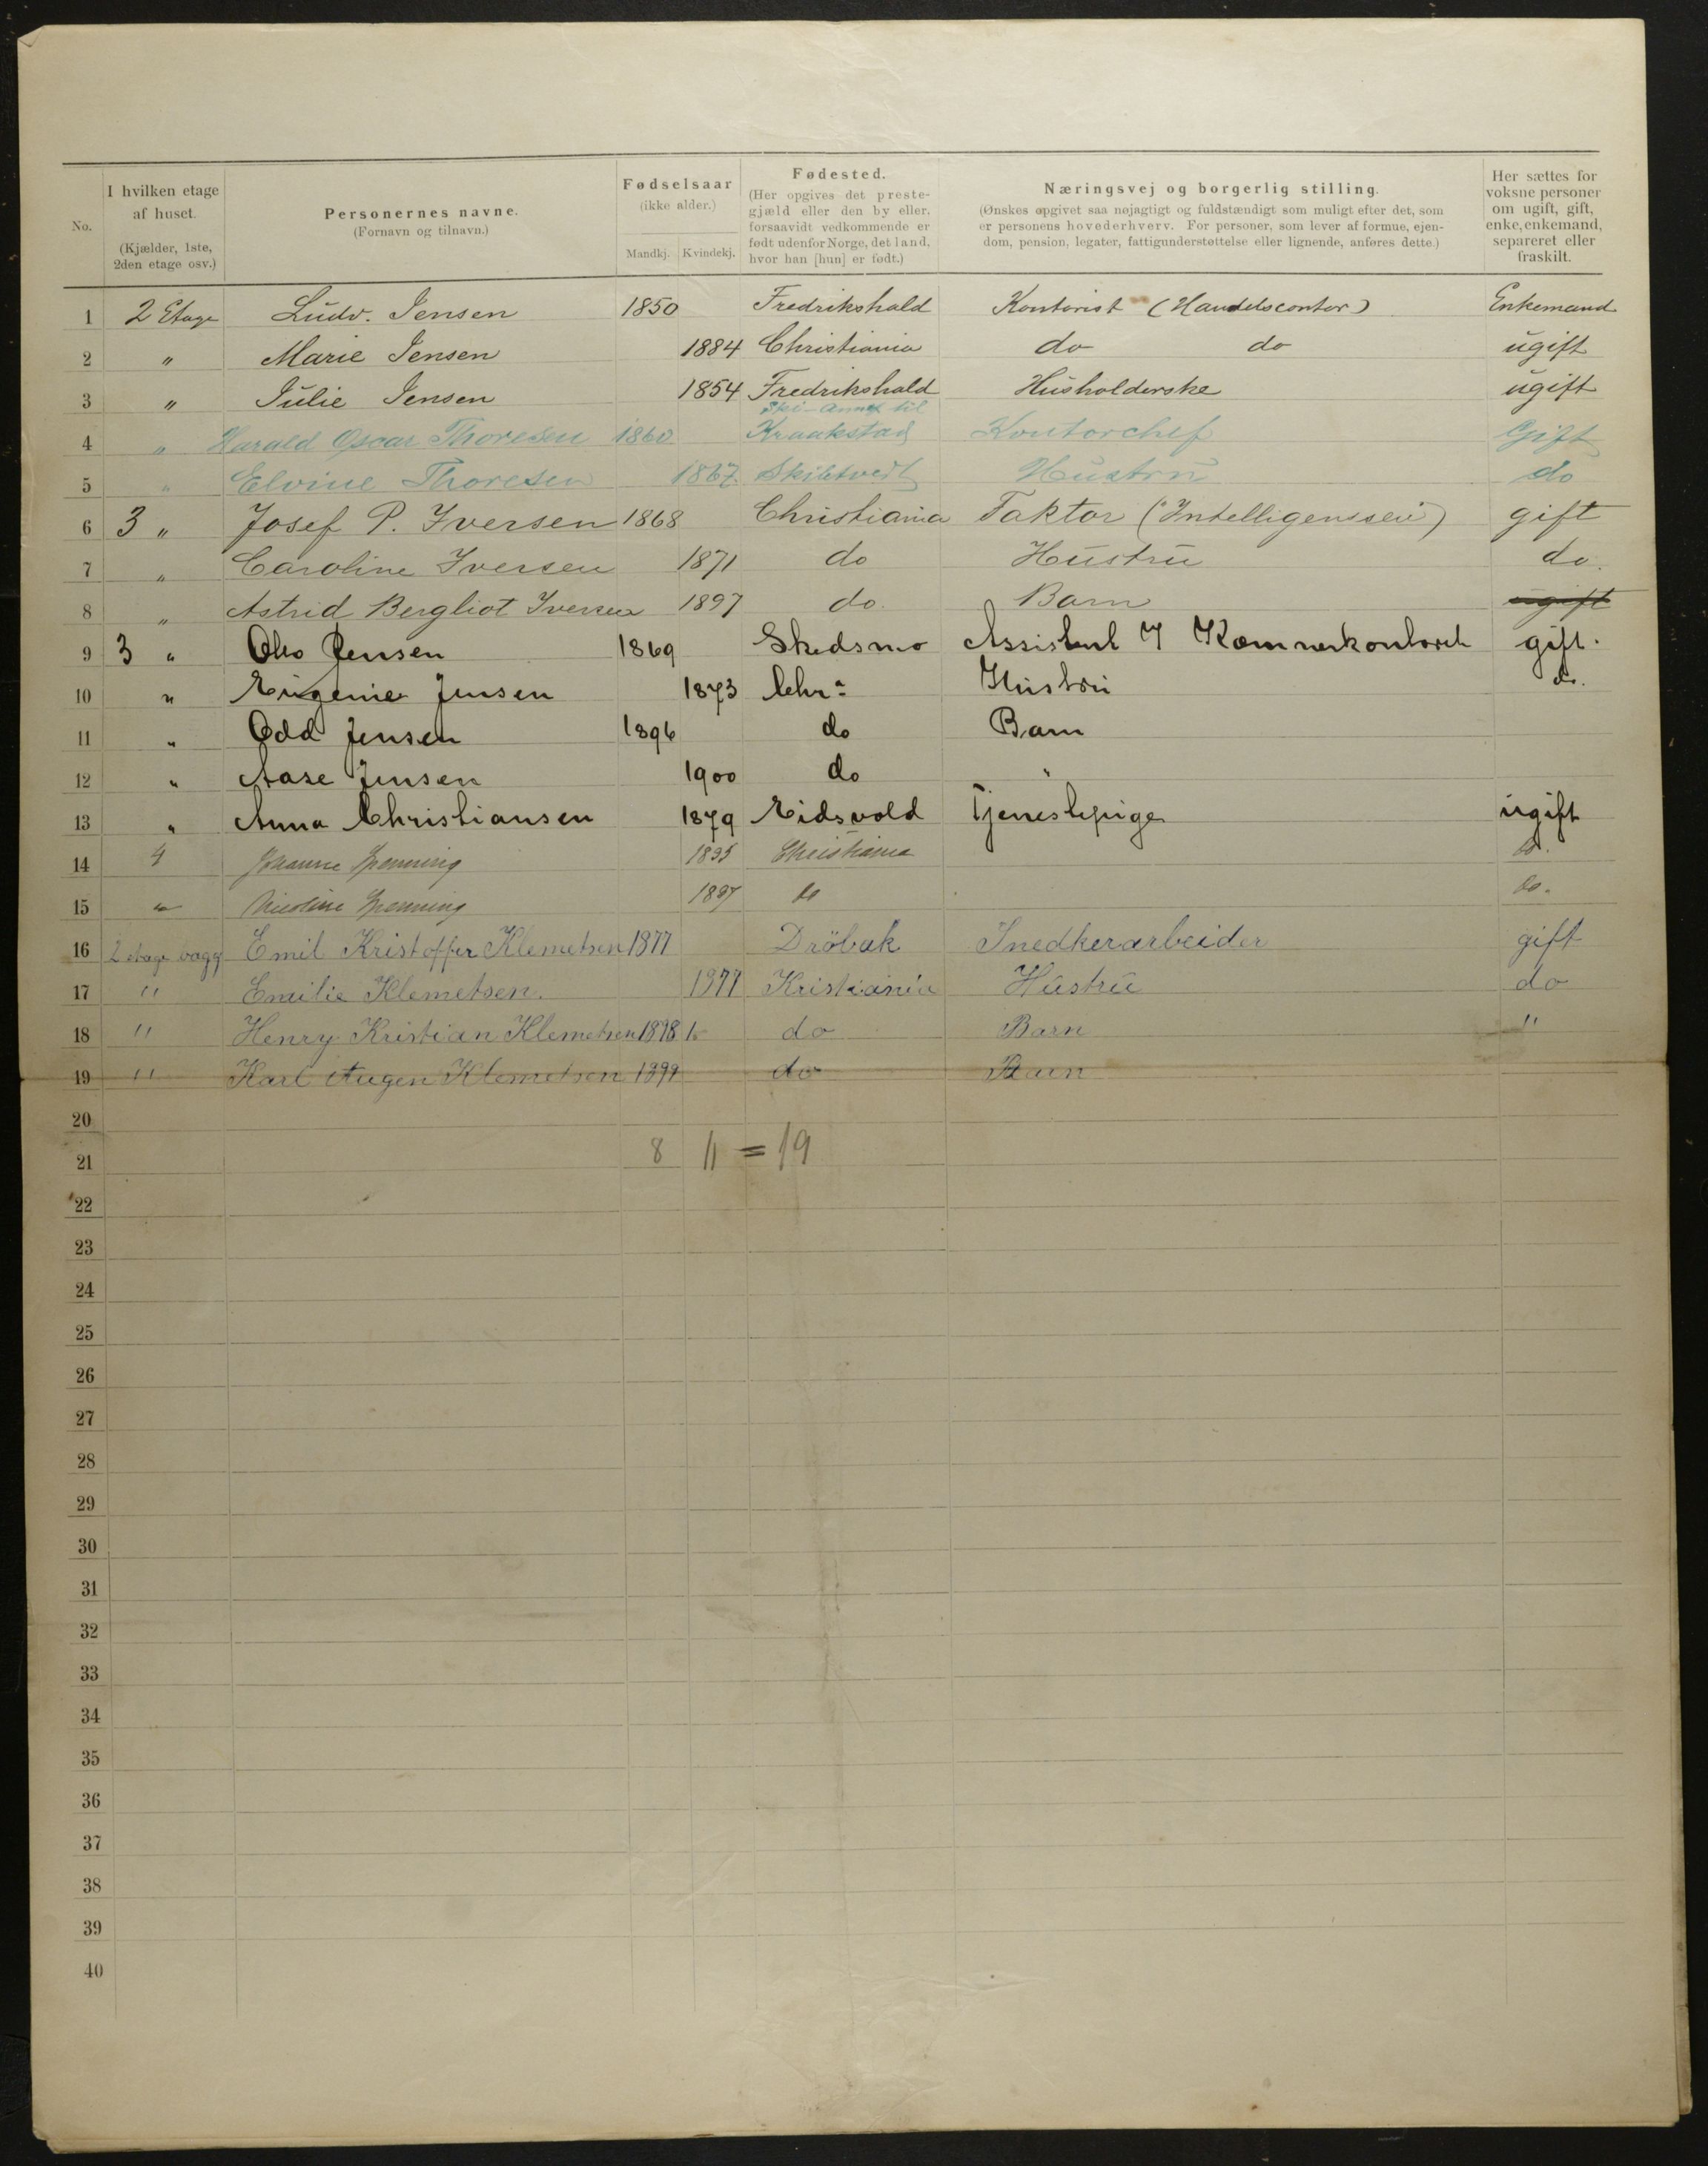 No.
I hvilken etage af huset. (Kjælder, 1ste, 2den etage osv.)
Personernes navne. (Fornavn og tilnavn.)
Fødselsaar (ikke alder.) Mandkj. Kvindekj.
Fødested. (Her opgives det prestegjæld eller den by eller, forsaavidt vedkommende er født udenfor Norge, det land, hvor han [hun] er født.)
Næringsvej og borgerlig stilling. (Ønskes opgivet saa nøjagtigt og fuldstændigt som muligt efter det, som er personens hovederhverv. For personer, som lever af formue, ejendom, pension, legater, fattigunderstøttelse eller lignende, anføres dette.)
Her sættes for voksne personer om ugift, gift, enke, enkemand, separeret eller fraskilt.
1 2 Etage Ludv. Jensen 1850 Fredrikshald Kontorist (Handelscontor) Enkemand
2 " Marie Jensen 1884 Christiania do do ugift
3 " Julie Jensen 1854 Fredrikshald Husholderske ugift
Ski-Annex til
4 " Harald Oscar Thoresen 1860 Kraakstad Kontorchef Gift
5 " Elvine Thoresen 1867 Skibtvedt Hustru do
6 3 " Josef P. Iversen 1868 Christiania Faktor (Intelligenssen) gift
7 " Caroline Iversen 1871 do Hustru do.
8 " Astrid Bergliot Iversen 1897 do Barn ugift
9 3 " Otto Jensen 1869 Skedsmo Assistent I Kæmnerkontoret gift.
10 " Eugenie Jensen 1873 Chra Hustru do.
11 " Odd Jensen 1896 do Barn
12 " Aase Jensen 1900 do "
13 " Anna Christiansen 1879 Eidsvold Tjenestepige ugift
14 4 Johanne 1835 Christiania do.
15 " Nicoline do do.
16 2 etage bagg Emil Kristoffer Klemetsen 1877 Dröbak Snedkerarbeider gift
17 " Emilie Klemetsen. 1877 Kristiania Hustru do
18 " Henry Kristian Klemetsen 1898 do Barn "
19 " Karl Augen Klemetsen 1899 do Barn
20
21 8 11 = 19
22
23
24
25
26
27
28
29
30
31
32
33
34
35
36
37
38
39
40